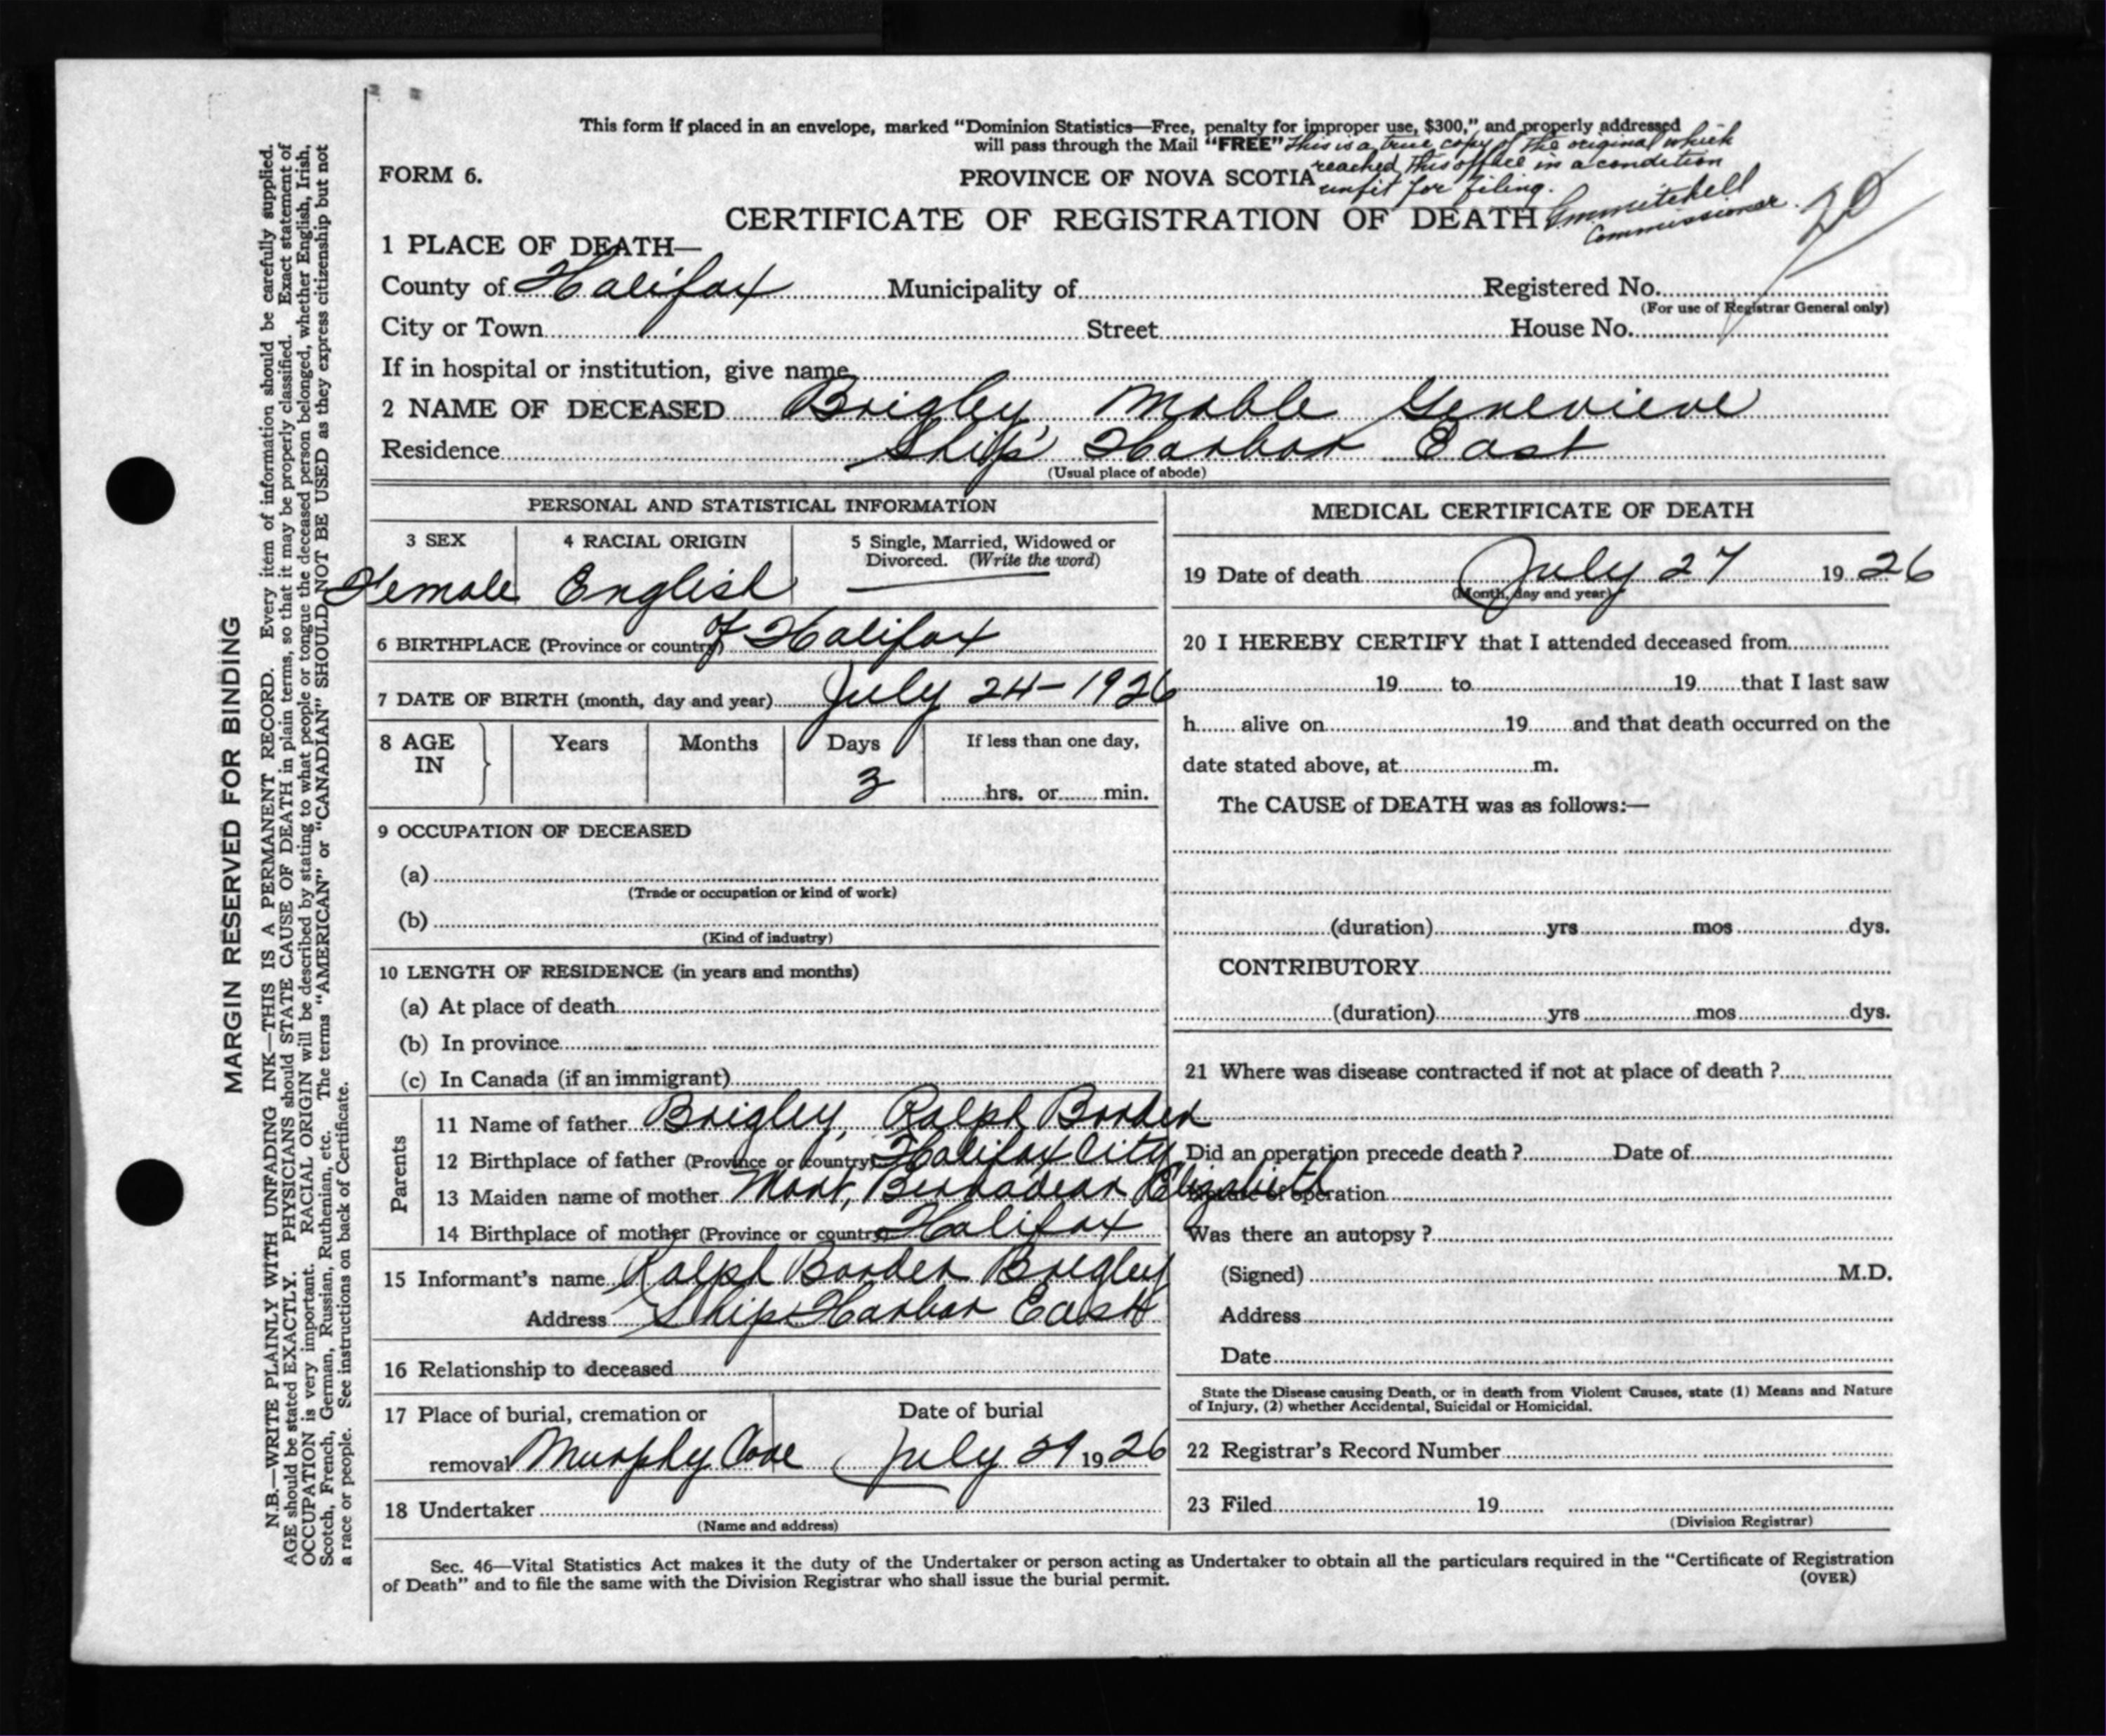 This form if placed in an envelope, marked “Dominion Statistics—Free, penalty for improper use, $300,” and properly addressed
will pass through the Mail “FREE” This is a true copy of the original which
reached this office in a condition
unfit for filing.
Commissioner.
20
FORM 6.
PROVINCE OF NOVA SCOTIA
CERTIFICATE OF REGISTRATION OF DEATH
1 PLACE OF DEATH—
County of Halifax Municipality of Registered No.
(For use of Registrar General only)
City or Town Street House No.
If in hospital or institution, give name
2 NAME OF DECEASED Brigley, Mable Genevieve
Residence Ship Harbor East
(Usual place of abode)
PERSONAL AND STATISTICAL INFORMATION
3 SEX 4 RACIAL ORIGIN 5 Single, Married, Widowed or
Divorced. (Write the word)
Female English —
6 BIRTHPLACE (Province or country) of Halifax
7 DATE OF BIRTH (month, day and year) July 24-1926
8 AGE IN Years Months Days If less than one day,
3 hrs. or min.
9 OCCUPATION OF DECEASED
(a)
(Trade or occupation or kind of work)
(b)
(Kind of industry)
10 LENGTH OF RESIDENCE (in years and months)
(a) At place of death
(b) In province
(c) In Canada (if an immigrant)
Parents
11 Name of father Brigley, Ralph Borden
12 Birthplace of father (Province or country) Halifax City
13 Maiden name of mother Elizabeth
14 Birthplace of mother (Province or country) Halifax
15 Informant's name Ralph Borden Brigley
Address Ship Harbor East
16 Relationship to deceased
17 Place of burial, cremation or Date of burial
removal Murphy Cove July 29 1926
18 Undertaker
(Name and address)
MEDICAL CERTIFICATE OF DEATH
19 Date of death July 27 1926
(Month, day and year)
20 I HEREBY CERTIFY that I attended deceased from
19 to 19 that I last saw
h alive on 19 and that death occurred on the
date stated above, at m.
The CAUSE of DEATH was as follows:—
(duration) yrs mos dys.
CONTRIBUTORY
(duration) yrs mos dys.
21 Where was disease contracted if not at place of death ?
Did an operation precede death ? Date of
Nature of operation
Was there an autopsy ?
(Signed) M.D.
Address
Date
State the Disease causing Death, or in death from Violent Causes, state (1) Means and Nature
of Injury, (2) whether Accidental, Suicidal or Homicidal.
22 Registrar's Record Number
23 Filed 19
(Division Registrar)
Sec. 46—Vital Statistics Act makes it the duty of the Undertaker or person acting as Undertaker to obtain all the particulars required in the “Certificate of Registration
of Death” and to file the same with the Division Registrar who shall issue the burial permit.
(OVER)
MARGIN RESERVED FOR BINDING
N.B.—WRITE PLAINLY WITH UNFADING INK—THIS IS A PERMANENT RECORD. Every item of information should be carefully supplied.
AGE should be stated EXACTLY. PHYSICIANS should STATE CAUSE OF DEATH in plain terms, so that it may be properly classified. Exact statement of
OCCUPATION is very important. RACIAL ORIGIN will be described by stating to what people or tongue the deceased person belonged, whether English, Irish,
Scotch, French, German, Russian, Ruthenian, etc. The terms “AMERICAN” or “CANADIAN” SHOULD NOT BE USED as they express citizenship but not
a race or people. See instructions on back of Certificate.